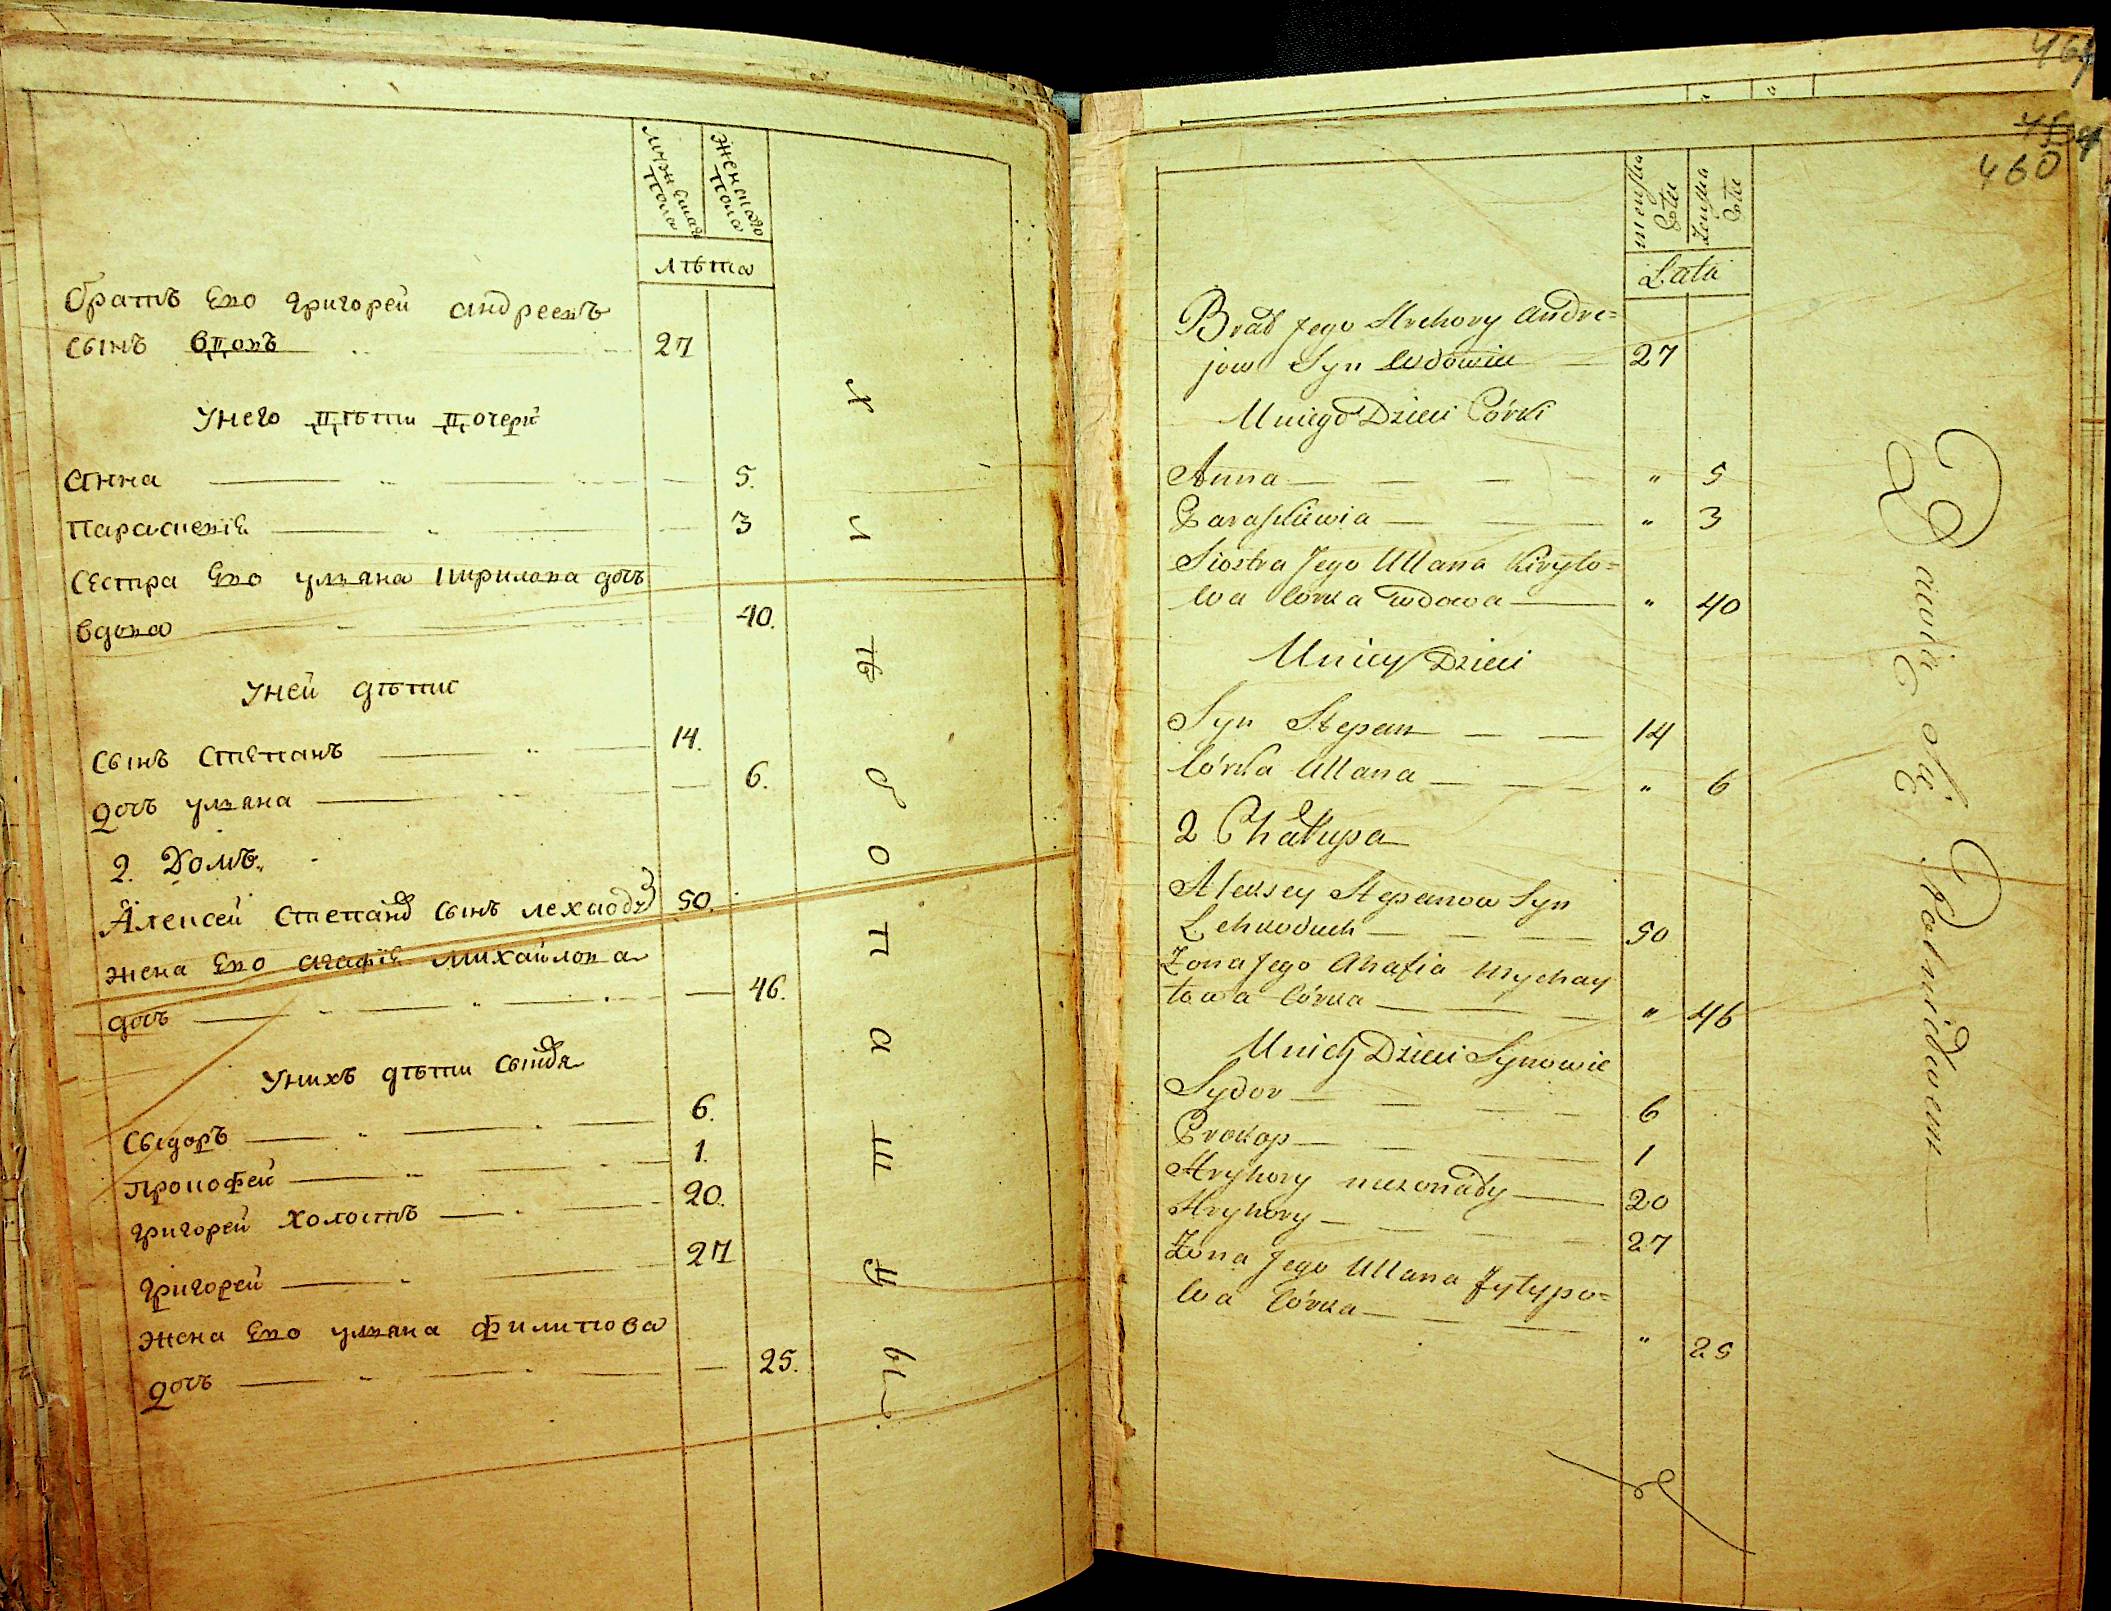 мужескаго пола
женскаго пола
лѣта
братъ его григорей андреевъ
сынъ вдовъ 27
унего дѣти дочери
анна 5.
Параскевія 3
сестра его улиана кирилова дочь
вдова 40.
уней дѣти
сынъ степанъ 14.
дочь улиана 6.
2. Домъ
Алексей степановъ сынъ лехкодухъ 50.
жена его агафія михайлова
дочь 46.
унихъ дѣти сыновя
сыдоръ 6.
прокофей 1.
григорей холостъ 20.
григорей 27
жена его улиана филипова
дочь 25.
хлѣбопашцы
464
460
męska Płeu
żenska Płeu
Lata
Brat Jego Hrehory Andre=
jow Syn wdowiec 27
U niego Dzieci Córki
Anna " 5
Paraskiewia " 3
Siostra Jego Ullana Kiryło=
wa Córka wdowa " 40
U niey Dzieci
Syn Stepan 14
Córka Ullana " 6
2 Chałupa
Alexsey Stepanow Syn
Lehkoduch 50
Żona Jego Ahafia Mychay
łowa Córka " 46
U nich Dzieci Synowie
Sydor 6
Prokop 1
Hryhory nieżonaty 20
Hryhory 27
Żona Jego Ullana Fyłypo=
wa Córka " 25
Bawią się Rolnictwem